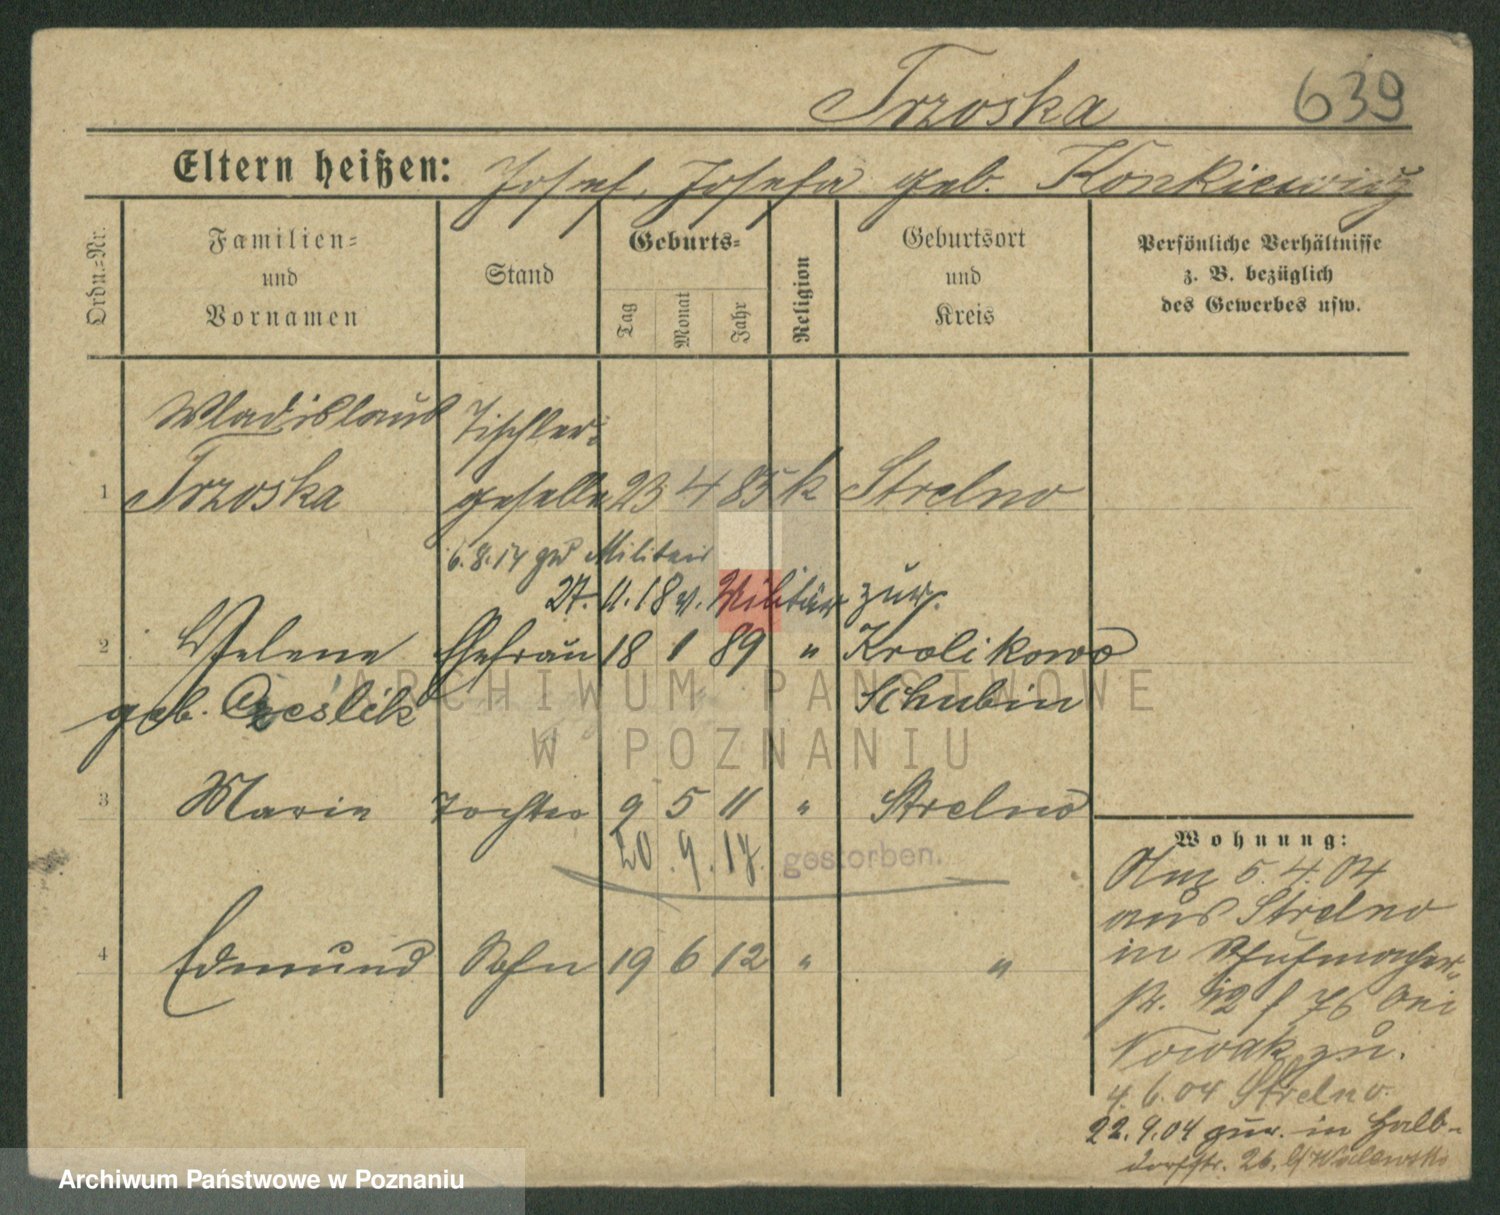 Trzoska 639
Eltern heißen: Josef, Josefa geb. Konkiewicz
Ordn.-Nr.
Familien-
und
Vornamen
Stand
Geburts-
Tag
Monat
Jahr
Religion
Geburtsort
und
Kreis
Persönliche Verhältnisse
z. B. bezüglich
des Gewerbes usw.
Wladislaus Tischler-
1 Trzoska geselle 23 4 85 k Strelno
6.8.14 zum Militair
27. 11. 18 v. Militär zur.
2 Helene Ehefrau 18 1 89 " Krolikowo
geb. Cześlik Schubin
3 Marie Tochter 9 5 11 " Strelno
20. 9. 17. gestorben.
4 Edmund Sohn 19 6 12 " "
Wohnung:
Am 5.4.04
aus Strelno
in
str. 12 / 76 bei
Nowak zu.
4.6.04 Strelno.
22.9.04 zur. in Halb-
dorfstr. 26. b/
ARCHIWUM PAŃSTWOWE
W POZNANIU
Archiwum Państwowe w Poznaniu